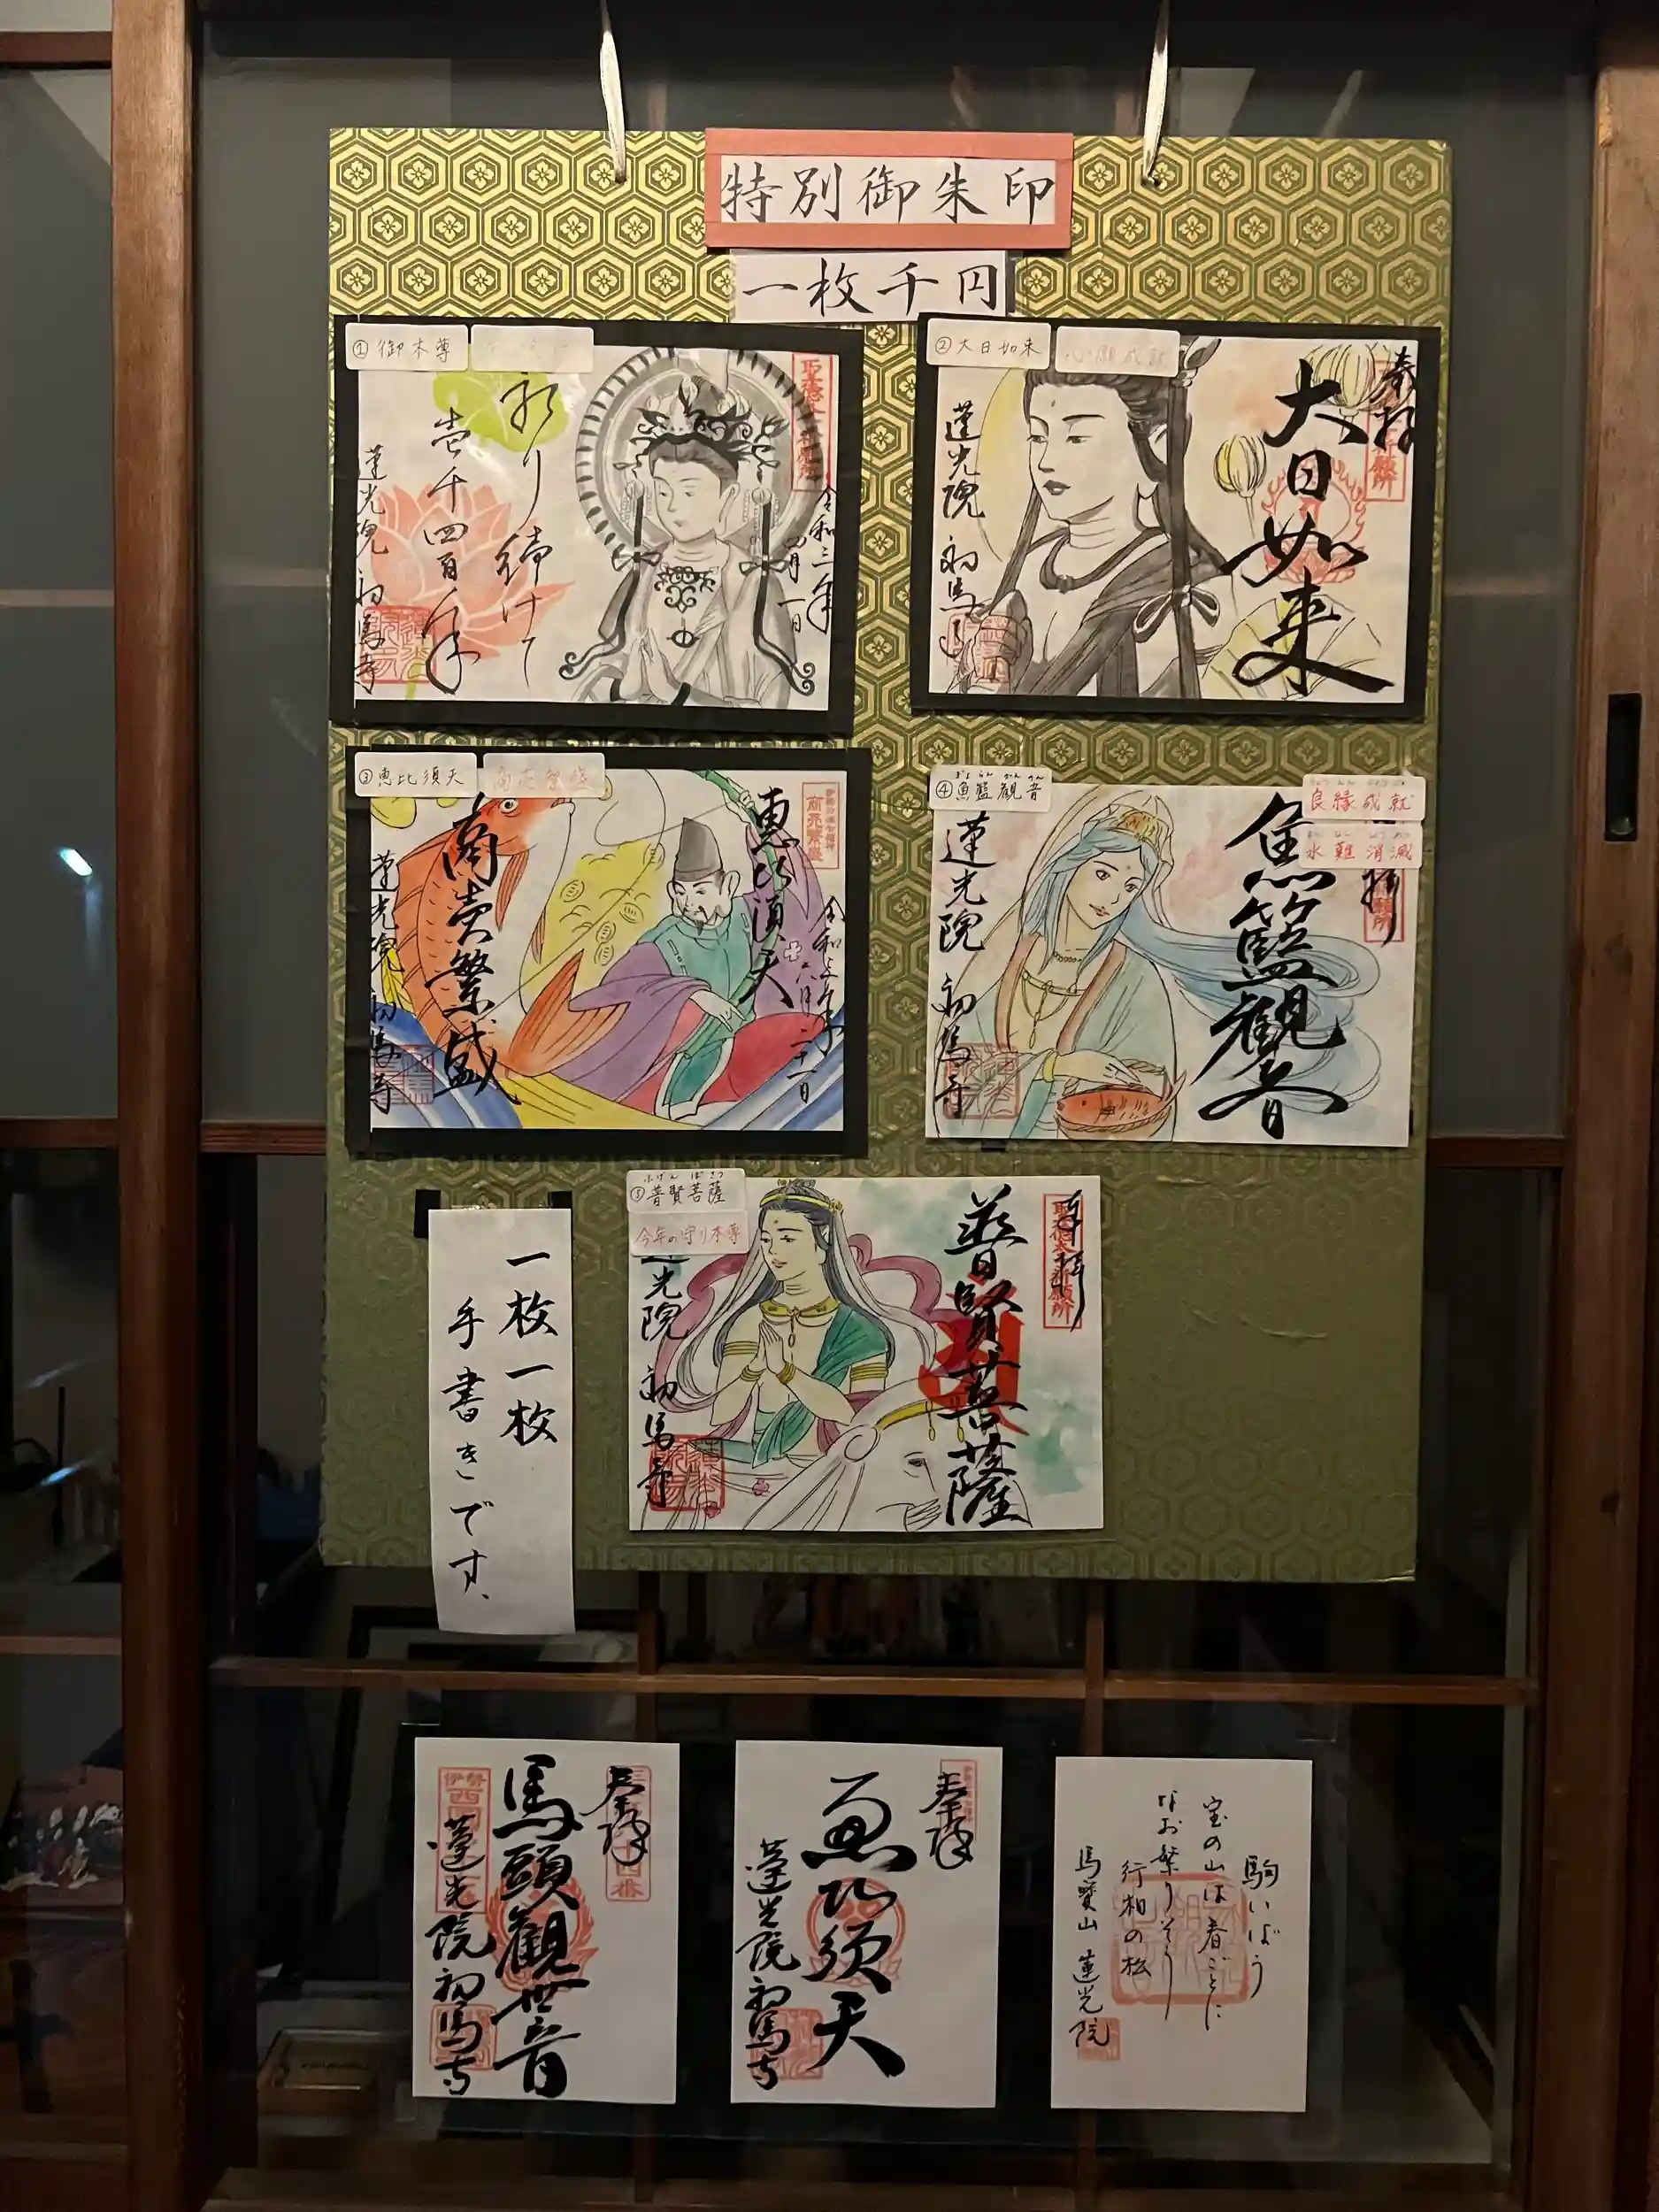 特別御朱印
一枚千円
①御本尊
聖徳太子祈願所
令和三年
四月一日
祈り続けて
壱千四百年
蓮光院 初馬寺
②大日如来
心願成就
奉拝
大日如来
蓮光院 初馬寺
③恵比須天
商売繁盛
商売繁盛
恵比須天
令和三年
六月二十一日
商売繁盛
蓮光院 初馬寺
④魚籃観音
ぎょらんかんのん
良縁成就
水難消滅
拝
魚籃観音
蓮光院 初馬寺
⑤普賢菩薩
ふげんぼさつ
今年の守り本尊
聖徳太子祈願所
奉拝
普賢菩薩
蓮光院 初馬寺
一枚一枚
手書きです、
奉拝
馬頭観世音
伊勢
蓮光院初馬寺
奉拝
恵比須天
蓮光院初馬寺
駒いばう
宝の山は春ごとに
なお繁りそう
行相の松
馬寳山 蓮光院